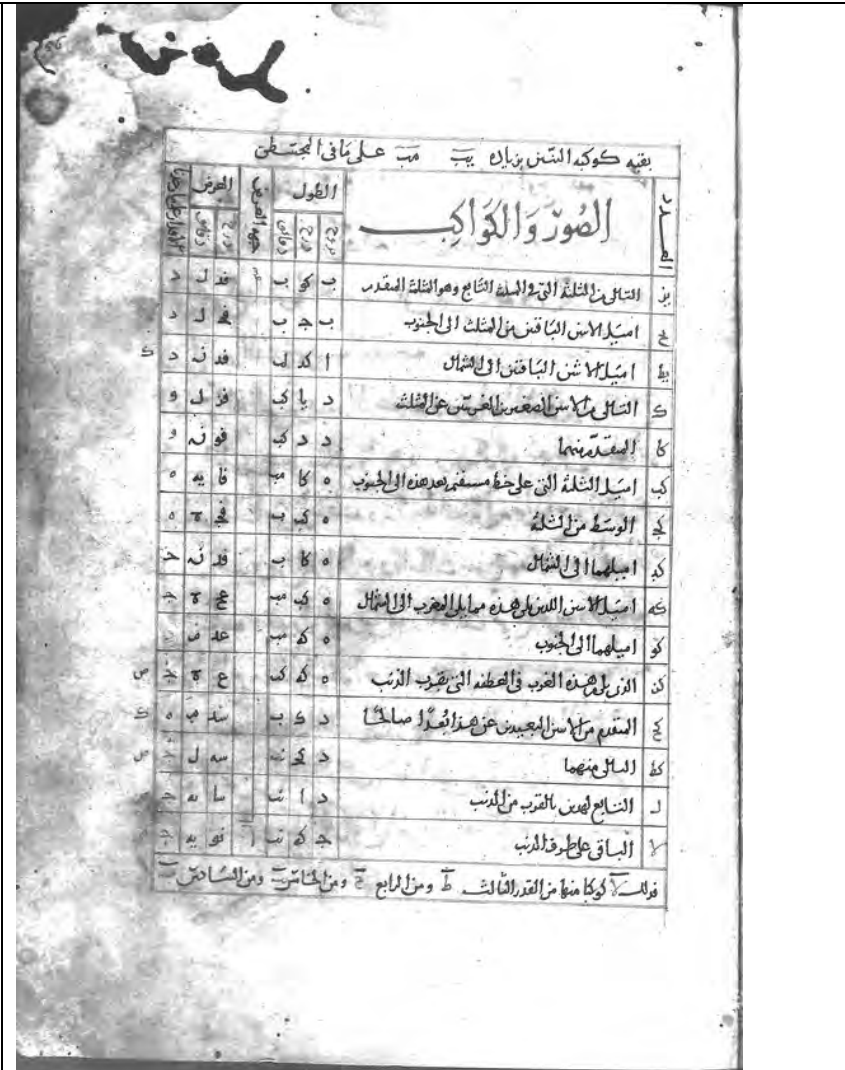 بقيه كوكبه التنين بزياده يب مب على ما في المجسطى
العدد الصُور وَالكَوَاكِب الطول جهة العرض العرض
بروج درج دقايق درج دقايق
يز التالى من الثلثة التى فى المثلث التابع وهو المثلث المتقدم ب كو ب فد ل د
يح اميل الاثنين الباقيين من المثلث الى الجنوب ب ج ب فج ل د
يط اميل الاثنين الباقيين الى الشمال ا كد ل فد ن د ك
ك التالى من الاثنين الصغيرين الغربيين عن المثلث د يا كب فز ل و
كا المتقدم منهما د د كب فو ن و
كب اميل الثلثة التى على خط مستقيم بعد هذه الى الجنوب ه كا مب فا يه ه
كج الوسط من الثلثة ه كب ب فج ه ه
كد اميلهما الى الشمال ه كا ب فد ن ج
كه اميل الاثنين اللذين يلى هذه مما يلى المغرب الى الشمال ه كب مب عح ه ج
كو اميلهما الى الجنوب ه كه مب عد
كز الذى يلى هذه الغرب فى العطفه التى بقرب الذنب ه كه كب ع ه ج ص
كح المتقدم من الاثنين البعيدين عن هذا بُعدًا صالحًا د ك ب سد م ه ك
كط التالى منهما د كج نب سه ل ج ص
ل التابع لهذين بالقرب من الذنب د ا نب سا يه ج ص
لا الباقى على طرف الذنب ج كه نب نو يه ج
فذلك لا كوكبا منها من القدر الثالث ط ومن الرابع ومن الخامس ومن السادس ب